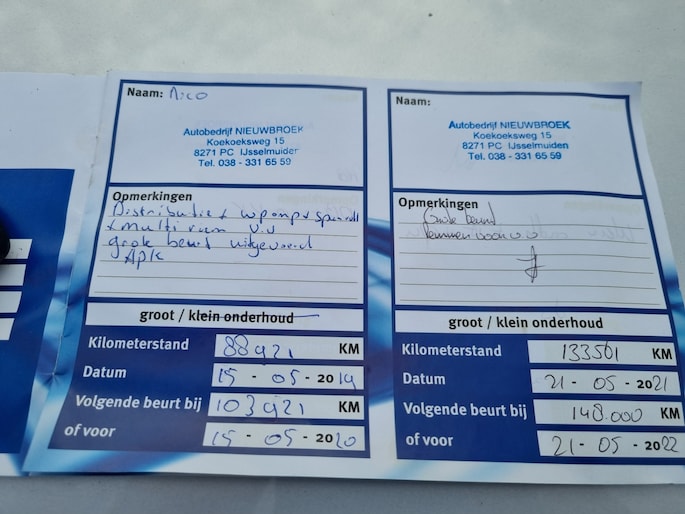 Naam: Nico
Autobedrijf NIEUWBROEK
Koekoeksweg 15
8271 PC IJsselmuiden
Tel. 038 - 331 65 59
Opmerkingen
Distributie + wpomp + spanrol
+ multi riem v.v
grote beurt uitgevoerd
Apk
groot / klein onderhoud
Kilometerstand 88921 KM
Datum 15 - 05 - 2019
Volgende beurt bij 103921 KM
of voor 15 - 05 - 2020
Naam:
Autobedrijf NIEUWBROEK
Koekoeksweg 15
8271 PC IJsselmuiden
Tel. 038 - 331 65 59
Opmerkingen
Grote beurt
remmen voor
groot / klein onderhoud
Kilometerstand 133561 KM
Datum 21 - 05 - 2021
Volgende beurt bij 148.000 KM
of voor 21 - 05 - 2022